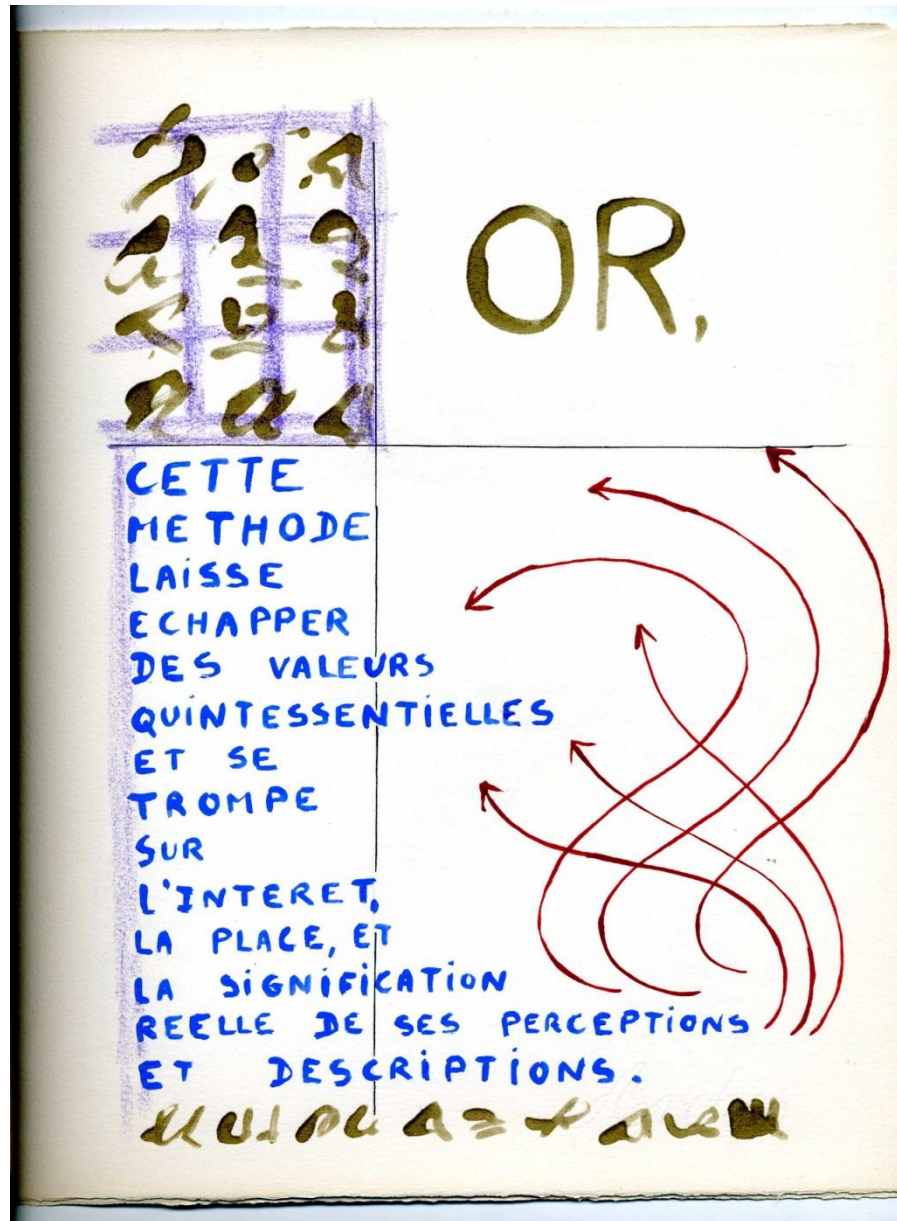 OR,
CETTE
METHODE
LAiSSE
ECHAPPER
DES VALEURS
QUiNTESSENTIELLES
ET SE
TROMPE
SUR
L'INTERET,
LA PLACE, ET
LA SiGNiFiCATiON
REELLE DE SES PERCEPTiONS
ET DESCRiPTiONS.